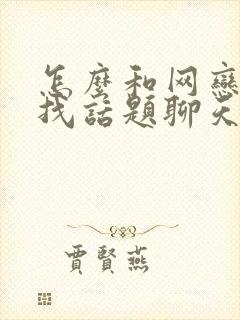 怎麼和网戀
找話題聊天
賈賢燕